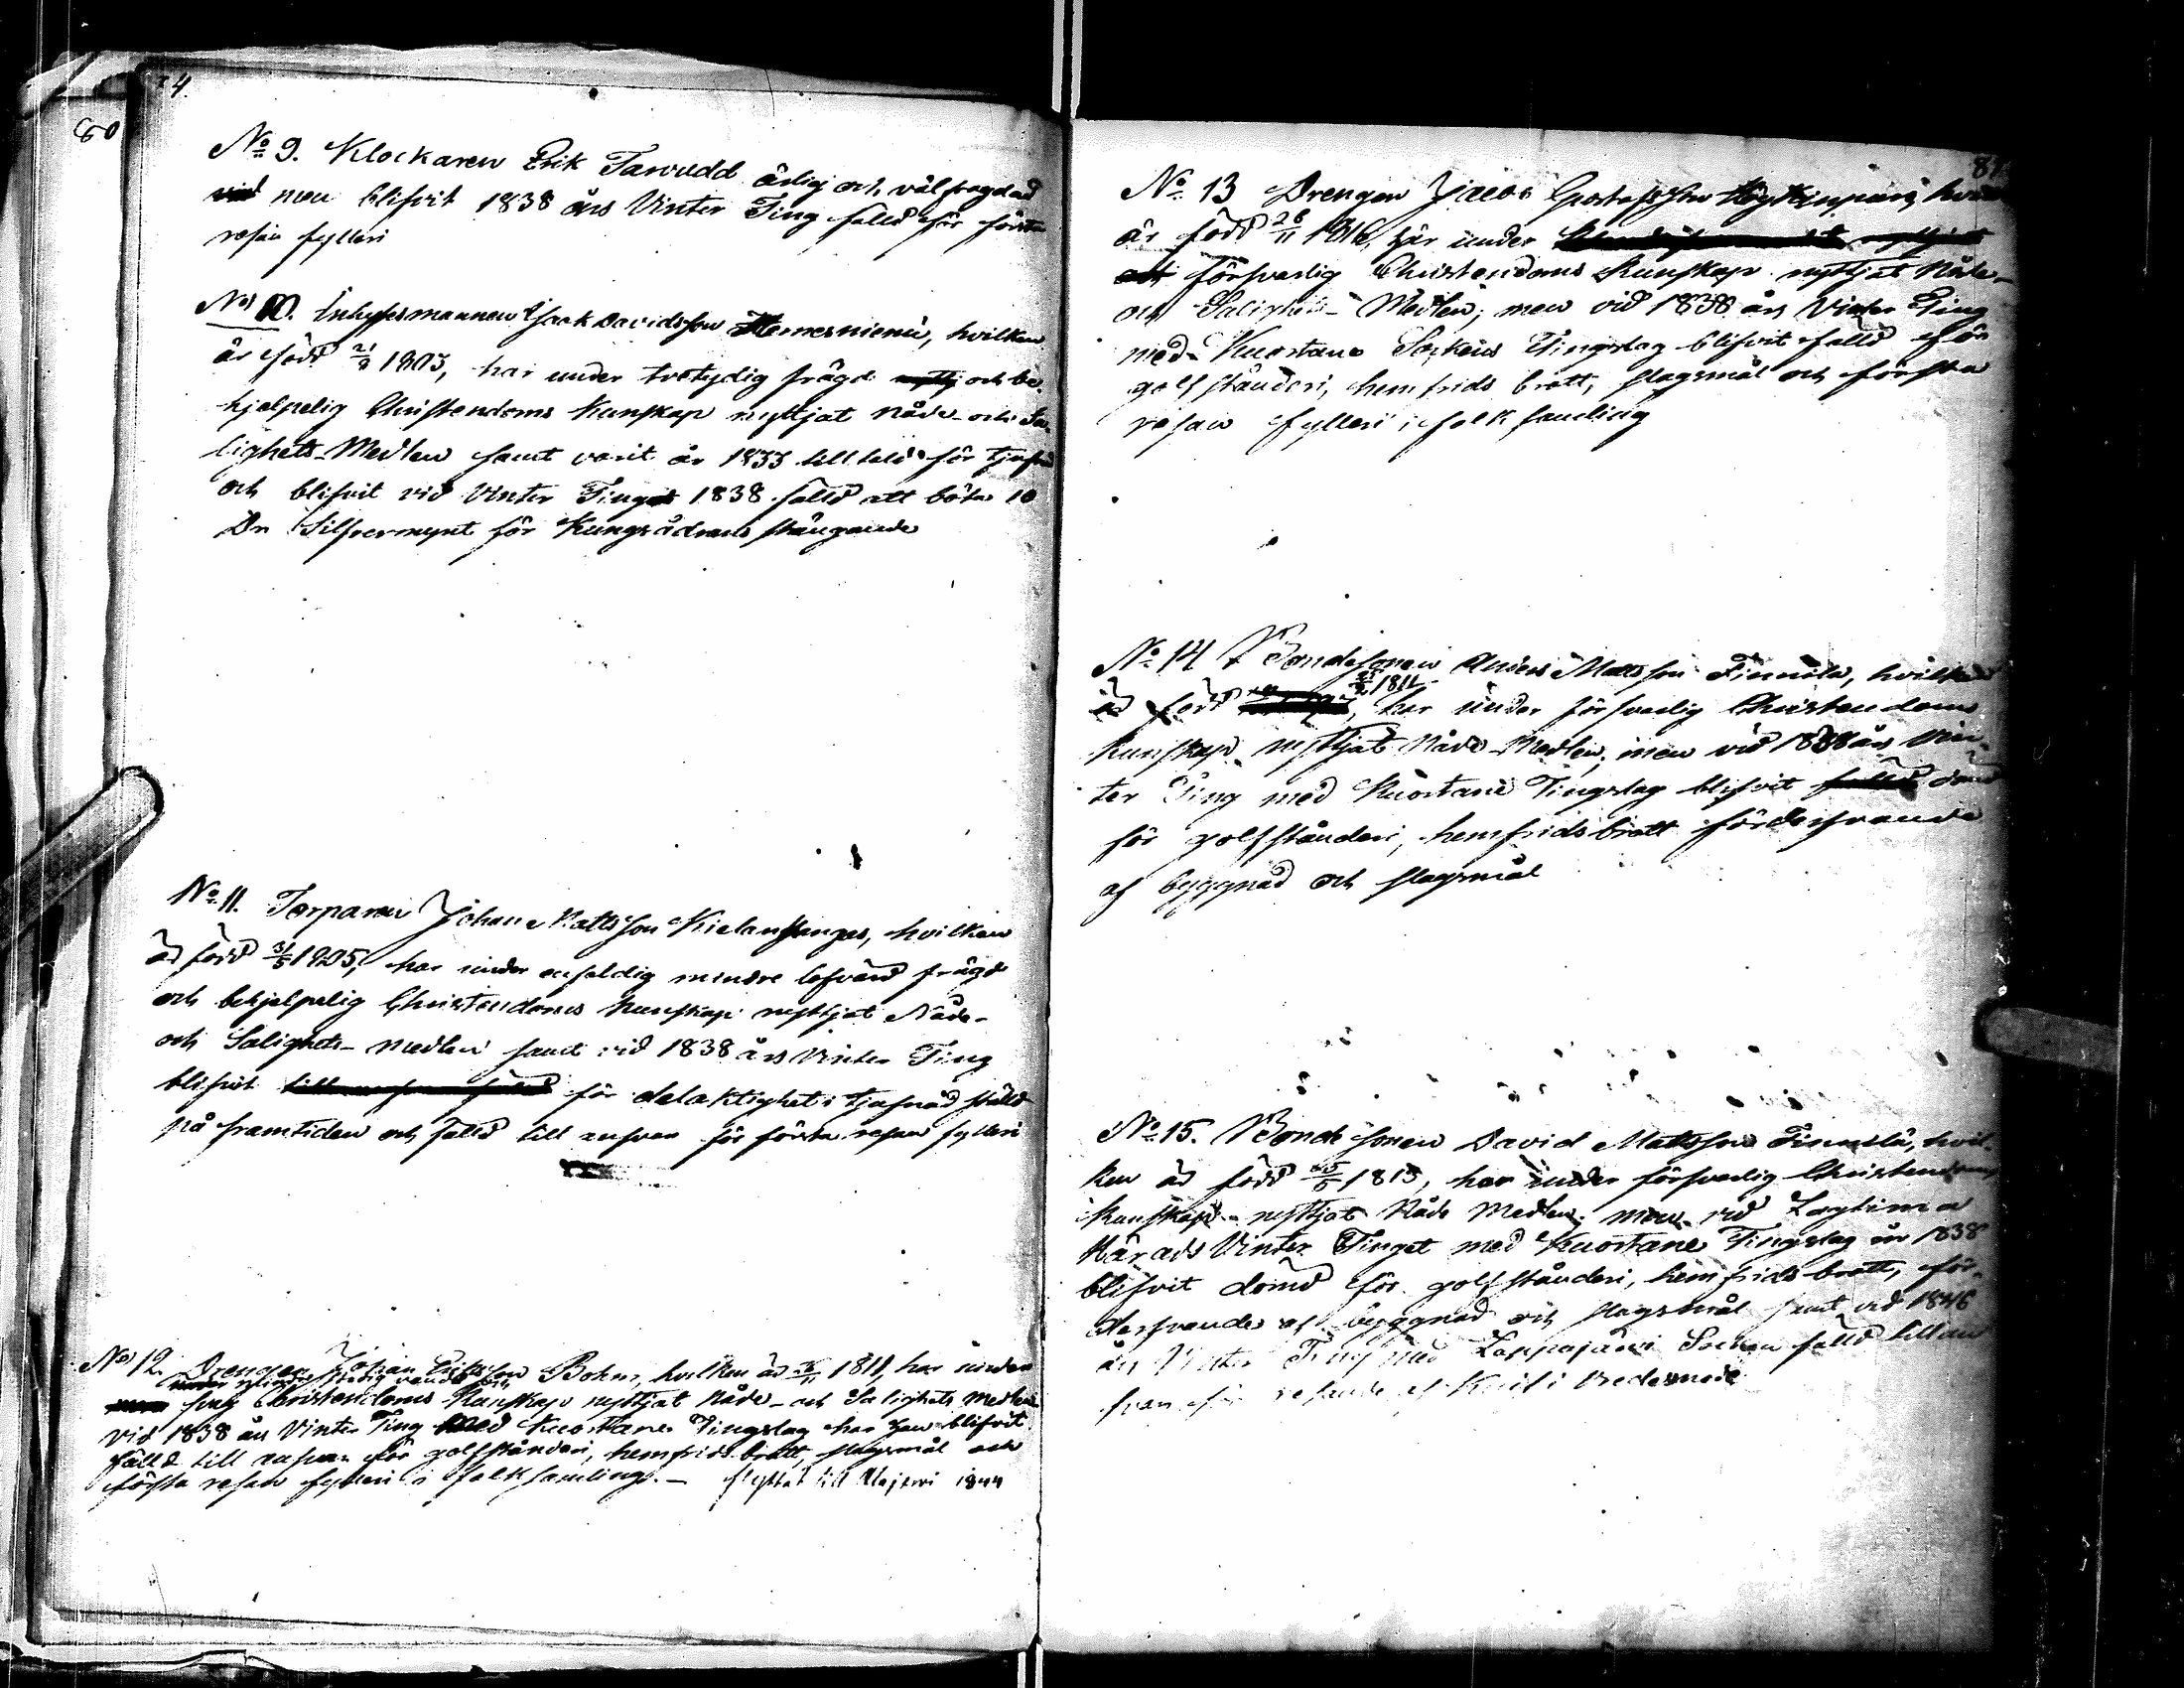 80
No 9. Klockaren Erik Tarvudd ärlig och välfragdad
men blifvit 1838 års Vinter Ting fälld för första
resan fylleri
No 10. Inhysesmannen Isaak Davidsson Hernesniemi, hvilken
är född 21/9 1803, har under tvetydig frägd och be-
hjelpelig Christendoms Kunskap nyttjat Nåde- och Sa-
lighets-Medlen samt varit år 1833 tilltald för tjufnad
och blifvit vid Vinter Tinget 1838 fälld att böta 10
Dr Silfvermynt för Kungsådrans stängande
No 11. Torparen Johan Mattsson Kielanhangas, hvilken
är född 31/5 1805, har under mindre lofvärd frägd
och behjelpelig Christendoms Kunskap nyttjat Nåde-
och Salighets-medlen samt vid 1838 års Vinter Ting
blifvit för delaktighet i tjufnad ställd
på framtiden och fälld till ansvar för första resan fylleri
No 12. Drengen Johan Eriksson Bohm, hvilken är 1811, har under
svag Christendoms Kunskap nyttjat Nåde- och Salighets Medlen
vid 1838 års Vinter Ting med Kuortane Tingslag har han blifvit
fälld till ansvar för golfståndari, hemfrids brott, slagsmål och
första resan fylleri i folksamling. - flyttat till Alajervi 1844
81
No 13 Drengen Jacob Gustafsson hvilken
är född 26/11 1816, har under
försvarlig Christendoms Kunskap nyttjat Nåde-
och Salighets-Medlen; men vid 1838 års Vinter Ting
med Kuortane Sockens Tingslag blifvit fälld för
golfståndari, hemfrids brott, slagsmål och första
resan fylleri i folksamling
No 14 Bondesonen Anders Mattsson Finnilä, hvilken
är född 1811, har under försvarlig Christendoms
Kunskap nyttjat Nåde-Medlen; men vid 1838 års Vin-
ter Ting med Kuortane Tingslag blifvit fälld dömd
för golfståndari, hemfridsbrott förderfvande
af byggnad och slagsmål
No 15. Bondesonen David Mattsson Finnilä, hvil-
ken är född 1815, har under försvarlig Christendoms
Kunskap nyttjat Nåde Medlen; men vid Lagtima
Härads Vinter Tinget med Kuortane Tingslag år 1838
blifvit dömd för golfståndari, hemfridsbrott, för-
derfvande af byggnad och slagsmål samt vid 1846
års Vinter Ting med Lappajärvi Socken fälld till an
svar för af Knif i vredesmod